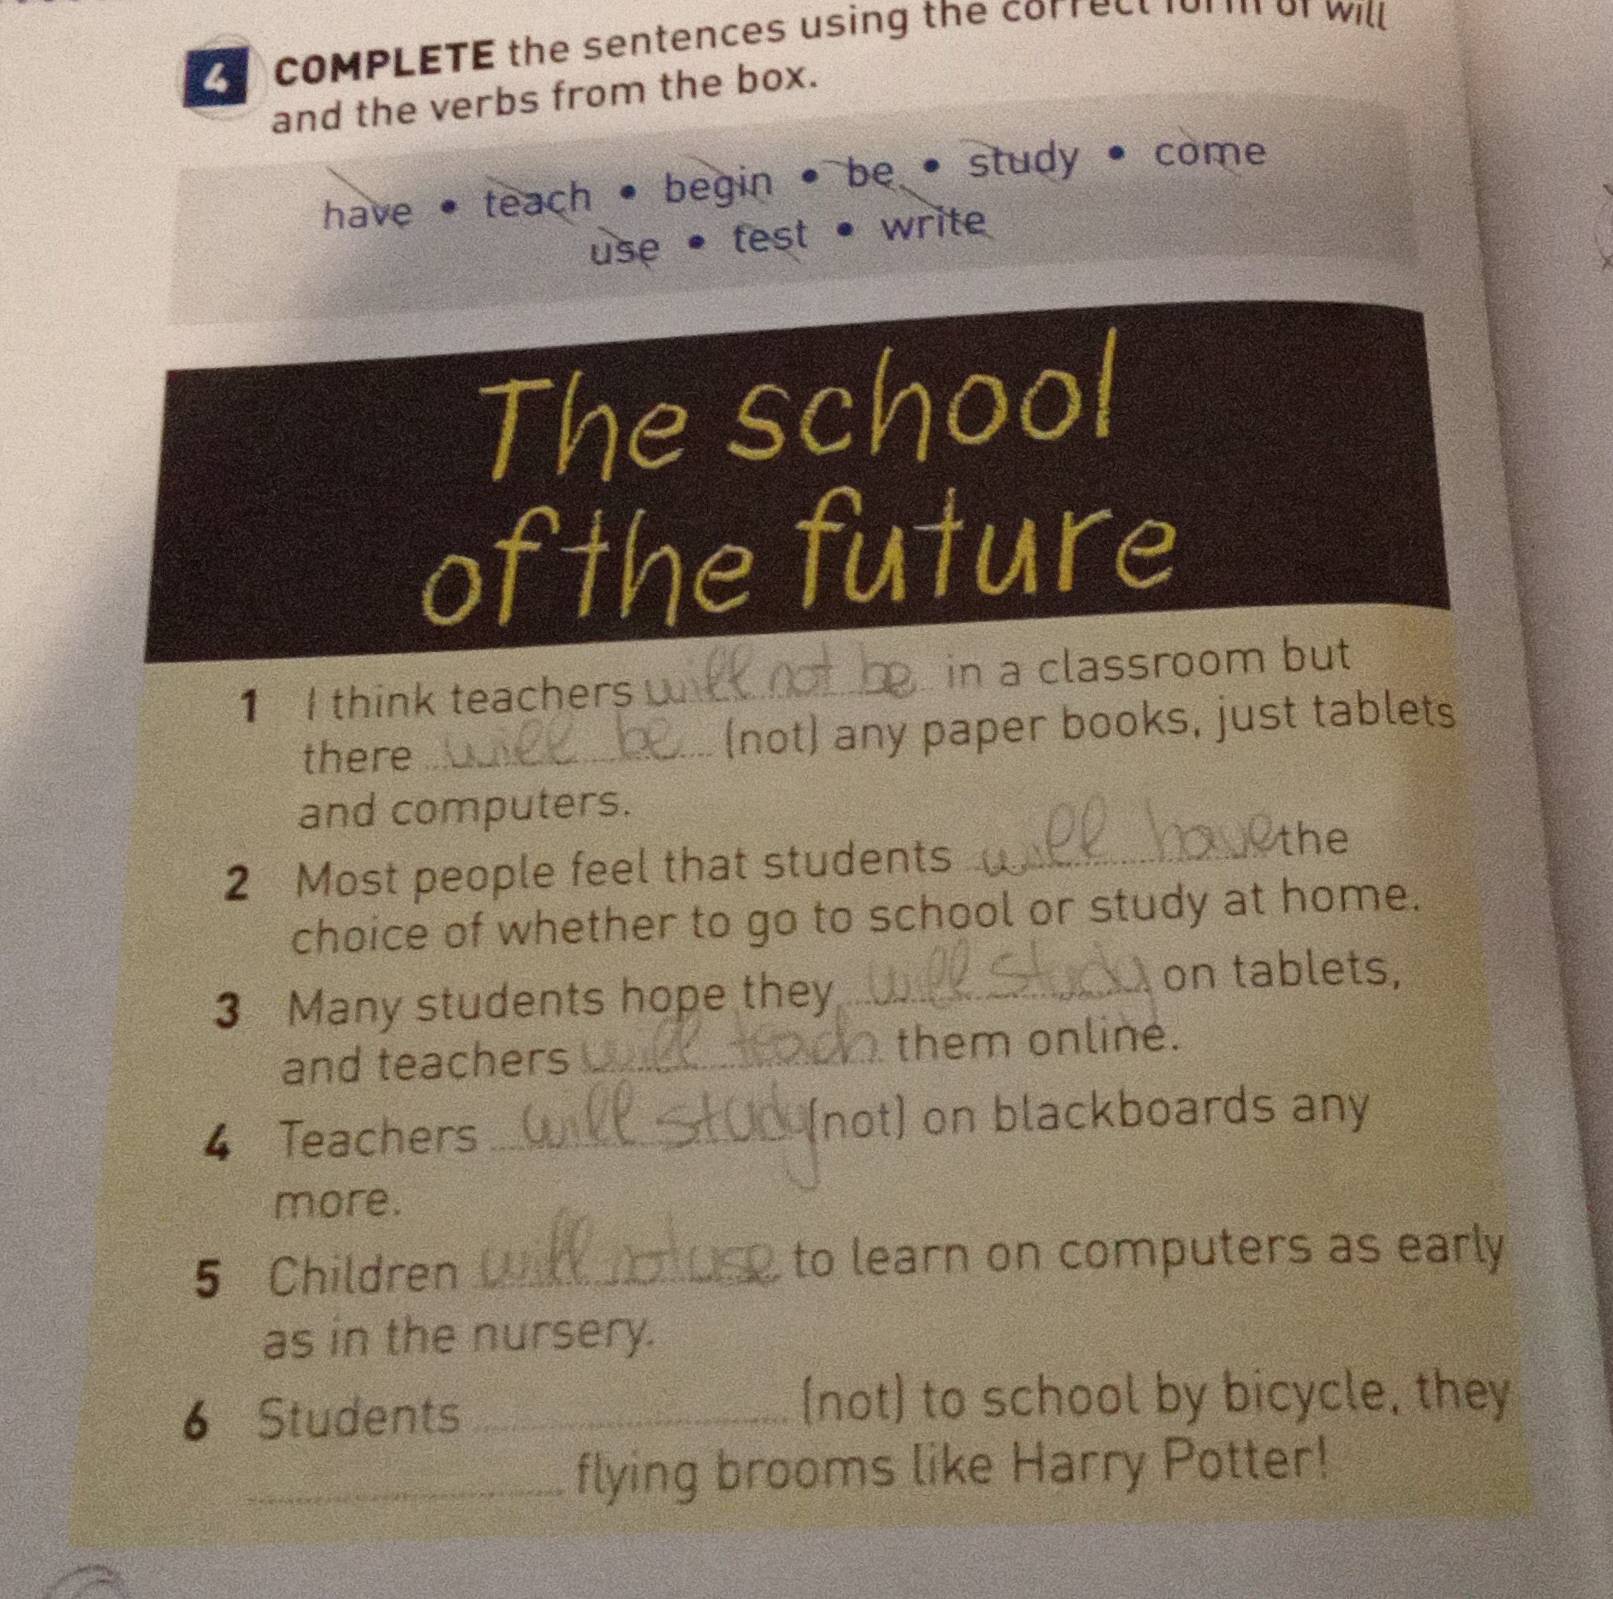 4 COMPLETE the sentences using the correct form of will
and the verbs from the box.
have • teach • begin • be • study • come
use • test • write
The school
of the future
1 I think teachers will not be in a classroom but
there will be (not) any paper books, just tablets
and computers.
2 Most people feel that students will have the
choice of whether to go to school or study at home.
3 Many students hope they will study on tablets,
and teachers will teach them online.
4 Teachers will study (not) on blackboards any
more.
5 Children will not use to learn on computers as early
as in the nursery.
6 Students (not) to school by bicycle, they
flying brooms like Harry Potter!